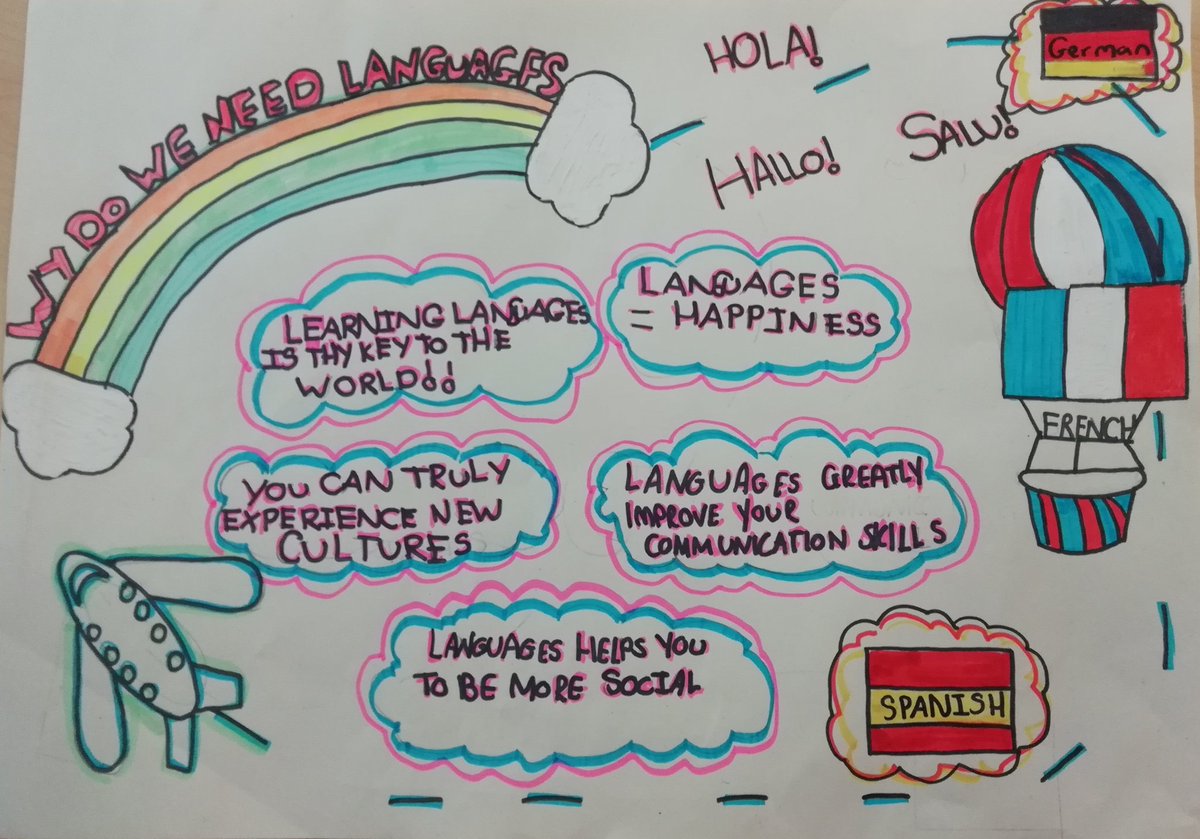 WHY DO WE NEED LANGUAGES
HOLA!
HALLO!
SALU!
German
LEARNING LANGUAGES
IS THY KEY TO THE
WORLD!!
LANGUAGES
= HAPPINESS
FRENCH
YOU CAN TRULY
EXPERIENCE NEW
CULTURES
LANGUAGES GREATLY
IMPROVE YOUR
COMMUNICATION SKILLS
LANGUAGES HELPS YOU
TO BE MORE SOCIAL
SPANISH